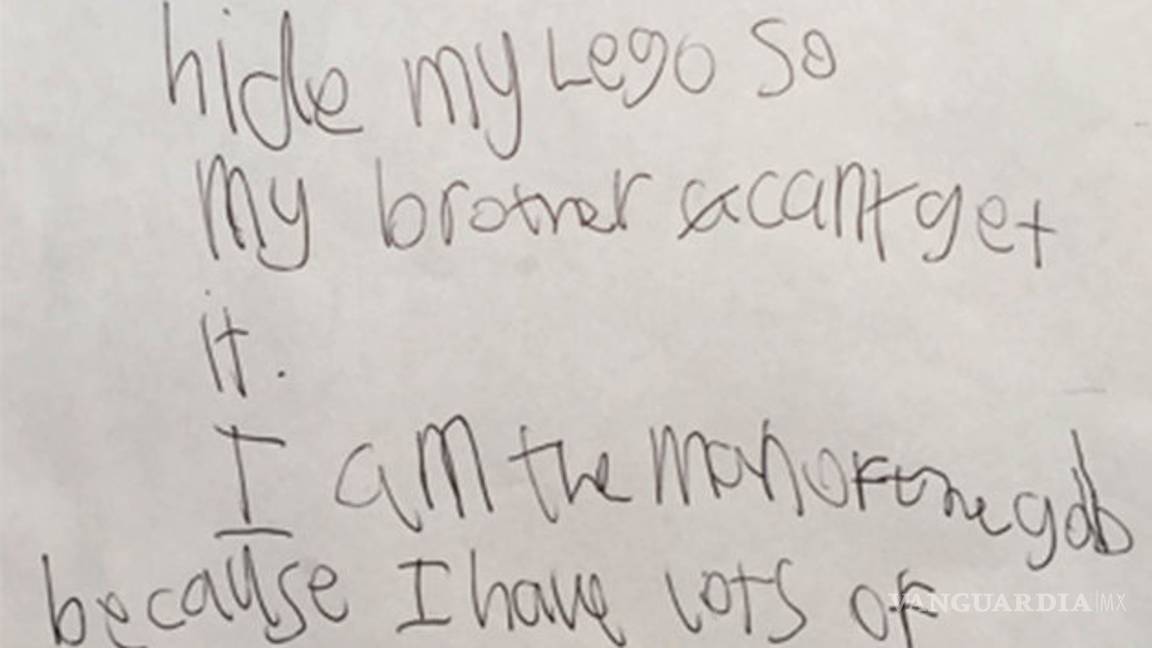 hide my Lego so
my brother cant get
it.
I am the man of the gob
because I have lots of
VANGUARDIA|MX